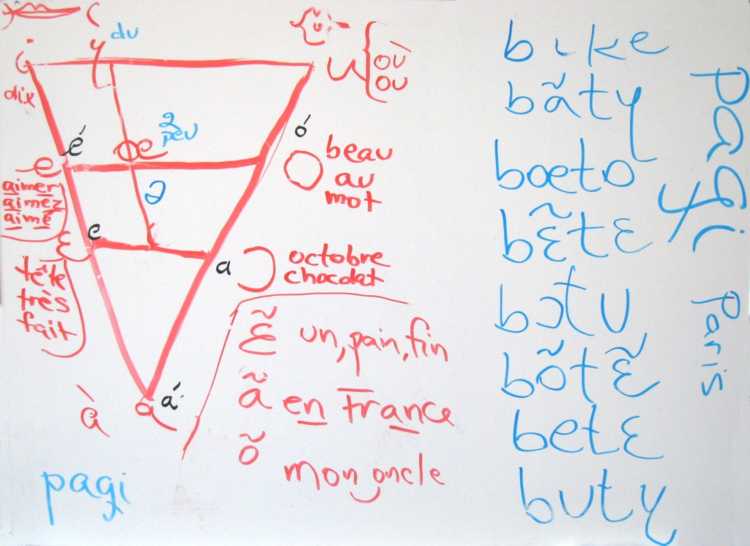 du
i y u
{ où
ou
dix
2
peu
é
ó
e œ
ə
beau
au
mot
aimer
aimez
aimé
e
ɛ
a
ɔ
octobre
chocolat
tête
très
fait
a á
à
ɛ̃ un, pain, fin
ã en France
õ mon oncle
pagi
bike
bãty
boeto
bɛ̃tɛ
bɔtu
bõtɛ̃
betɛ
buty
pagi
Paris